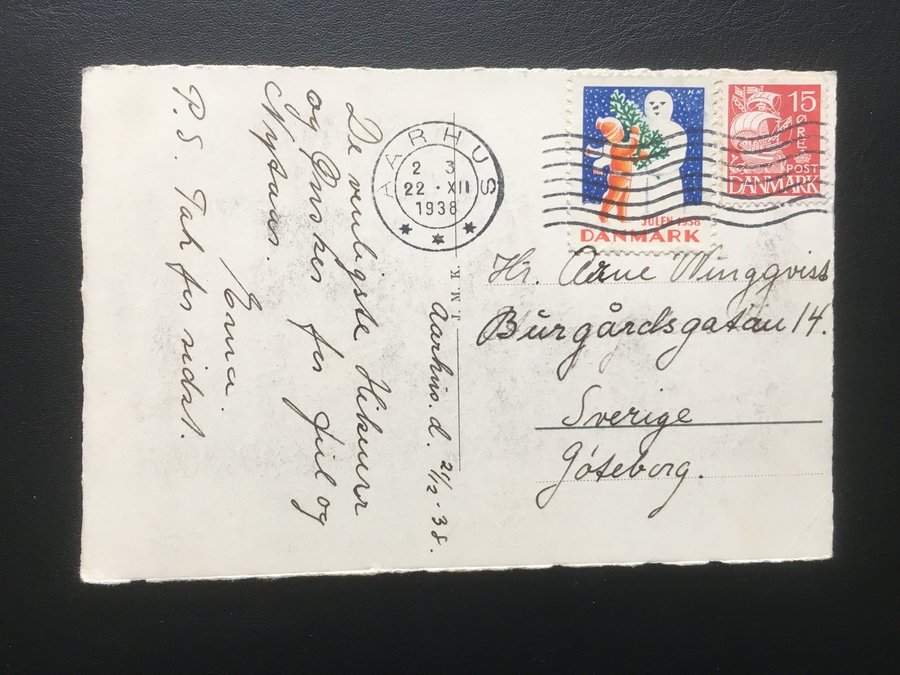 Aarhus. d. 21/12-38.
De venligste Hilsener
og Ønsker for Jul og
Nytaar.
Erna.
P.S. Tak for sidst.
J. M. K.
AARHUS
2 3
22 · XII
1938
JULEN 1938
DANMARK
15
ØRE
POST
DANMARK
Hr. Arne Winggvist
Burgårdsgatan 14.
Sverige
Göteborg.